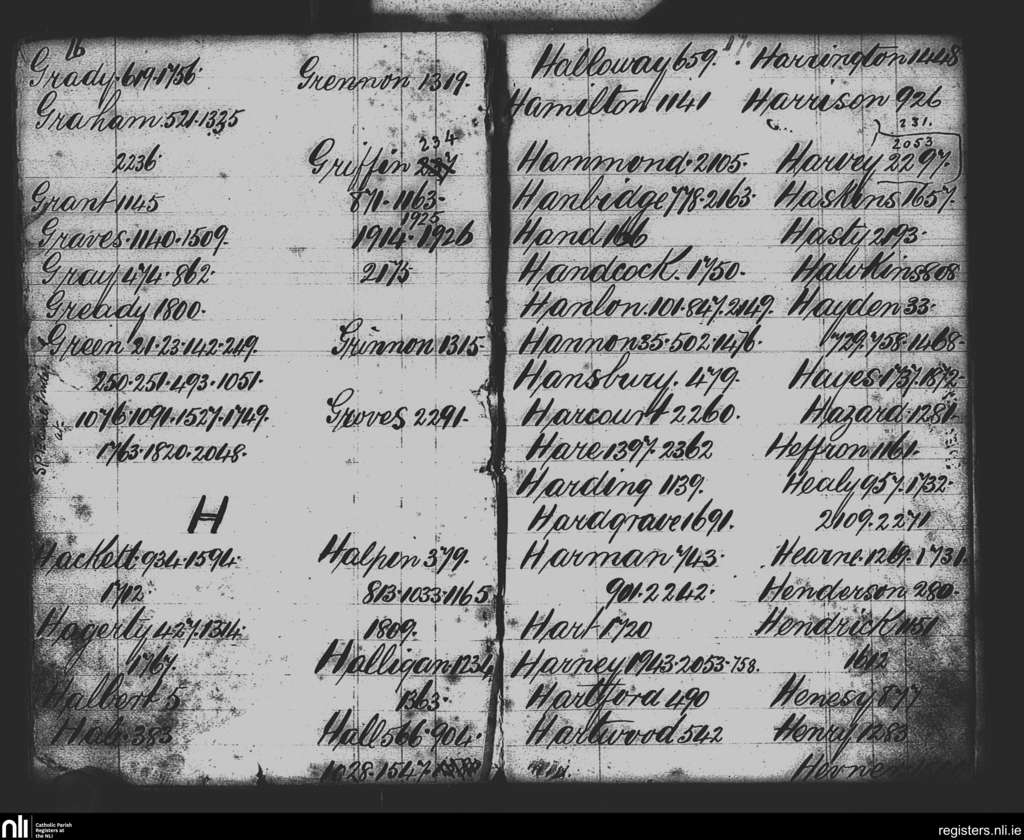 16
Grady 619.1756.
Graham 521.1325
2236.
Grant 1145
Graves.1140.1509.
Gray 474.862.
Gready 1800.
Green 21.23.142.249.
250.251.493.1051.
1076.1091.1527.1749.
1763.1820.2048.
H
Hackett.934.1594.
1712.
Hagerty 427.1314.
1767.
Halbert 5
383
Grennon 1319.
234
Griffin
871.1163.
1925
1914.1926
2175
Grinnon 1315.
Groves 2291.
Halpin 379.
813.1033.1165
1809.
Halligan 1234
1363.
Hall 566.904.
1028.1547.
17.
Halloway 659.
Hamilton 1141
Hammond.2105.
Hanbridge 778.2163.
Hand 166
Handcock.1750.
Hanlon.101.847.2149.
Hannon 35.502.1476.
Hansbury.479.
Harcourt 2260.
Hare 1397.2362
Harding 1139.
Hardgrave 1691.
Harman 743.
901.2242.
Hart 1720
Harney 1943.2053.758.
Hartford 490
Hartwood 542
Harrington 1448
Harrison 926
231.
2053
Harvey 2297.
Haskins 1657.
Hasty 2193.
Hawkins 808
Hayden 33.
729.758.1468.
Hayes.1737.1872.
Hazard.1281.
Heffron 1161.
Healy 957.1732.
2109.2271
Hearne.1269.1731.
Henderson 280.
Hendrick 1151
1612
Henesy 877
Henry 1283
nli
Catholic Parish
Registers at
the NLI
registers.nli.ie